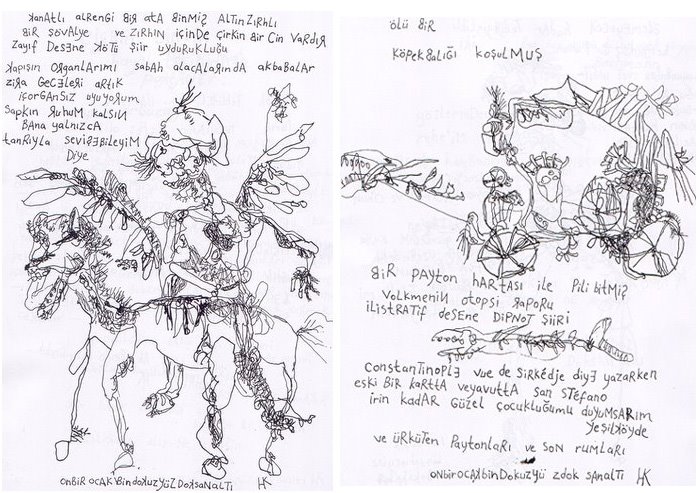 kanatlı alrengi bir ata binmiş altın zırhlı
bir şövalye ve zırhın içinde çirkin bir cin vardır
zayıf desene kötü şiir uydurukluğu
kapışın organlarımı sabah alacalarında akbabalar
zira geceleri artık
içorgansız uyuyorum
sapkın ruhum kalsın
bana yalnızca
tanrıyla sevişebileyim
diye
onbir ocak bindokuzyüzdoksanaltı HK
ölü bir
köpekbalığı koşulmuş
bir payton hartası ile pili bitmiş
volkmenin otopsi raporu
ilistratif desene dipnot şiiri
constantinople vue de sirkédje diye yazarken
eski bir kartta veyavutta san stefano
irin kadar güzel çocukluğumu duyumsarım
yeşilköyde
ve ürküten paytonları ve son rumları
onbirocakbindokuzyü zdok sanaltı HK